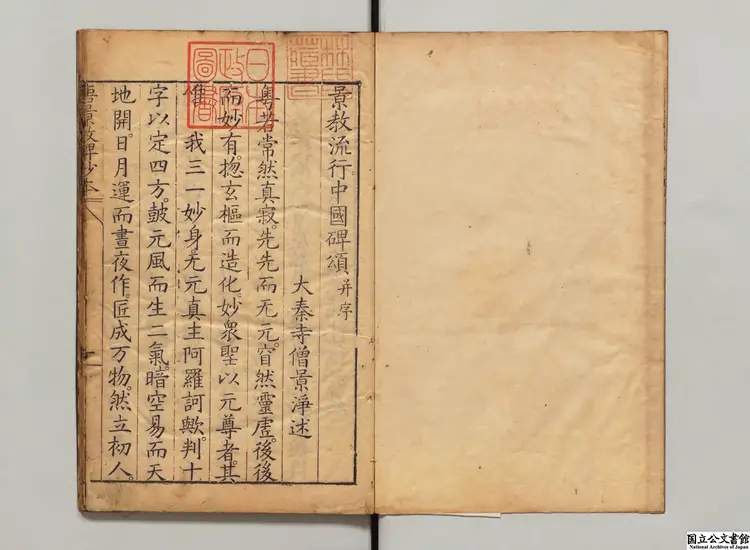 景教流行中國碑頌 并序
大秦寺僧景淨述
粵若常然真寂。先先而无元。窅然靈虛。後後
而妙有。揔玄樞而造化。妙衆聖以元尊者。其
唯 我三一妙身。无元真主阿羅訶歟。判十
字以定四方。鼓元風而生二氣。暗空易而天
地開。日月運而晝夜作。匠成万物。然立初人。
唐景教碑抄本
日本
政府
圖書
国立公文書館
National Archives of Japan